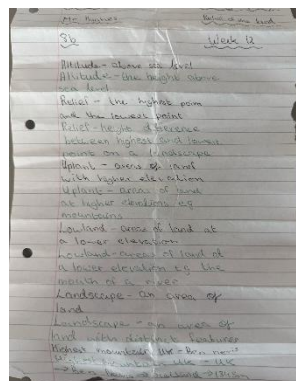 Relief of the land
8b Week 12
Altitude - above sea level
Altitude - the height above
sea level
Relief - the highest point
and the lowest point
Relief - height difference
between highest and lowest
point on a landscape
Uplant - areas of land
with higher elevation
Uplant - areas of land
at higher elevations eg
mountains
Lowland - area of land at
a lower elevation
Lowland - areas of land at
a lower elevation eg the
mouth of a river
Landscape - an area of
land
Landscape - an area of
land with distinct features
Highest mountain UK - Ben
mountain UK